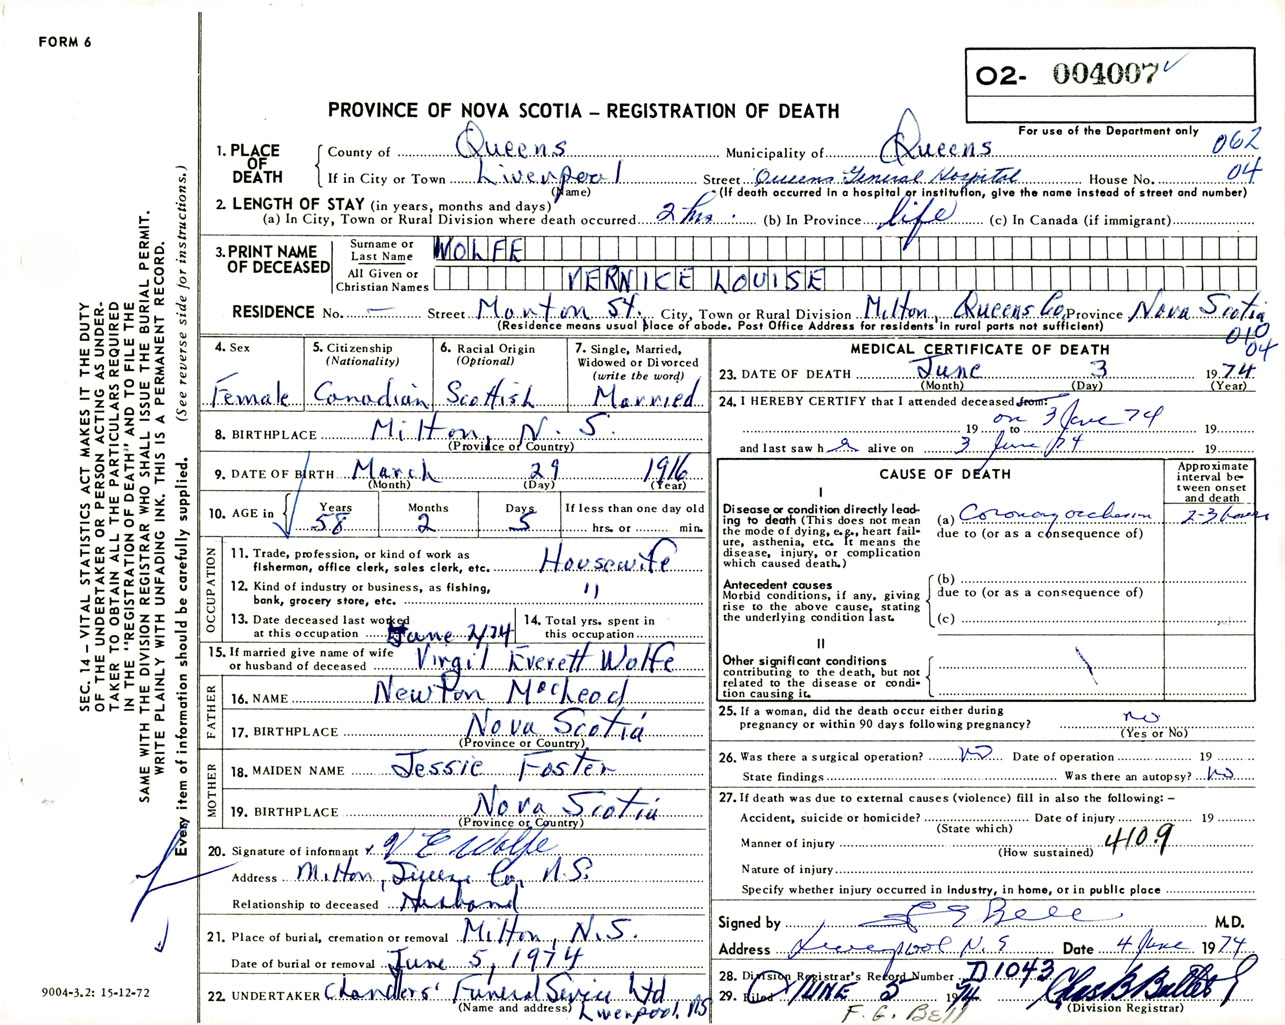 FORM 6
O2- 004007
For use of the Department only
PROVINCE OF NOVA SCOTIA – REGISTRATION OF DEATH
062
04
1. PLACE OF DEATH
County of Queens Municipality of Queens
If in City or Town Liverpool Street Queens General Hospital House No.
(Name) (If death occurred in a hospital or institution, give the name instead of street and number)
2. LENGTH OF STAY (in years, months and days)
(a) In City, Town or Rural Division where death occurred 2 hrs. (b) In Province life (c) In Canada (if immigrant)
3. PRINT NAME OF DECEASED
Surname or Last Name WOLFE
All Given or Christian Names VERNICE LOUISE
RESIDENCE No. — Street Manton St. City, Town or Rural Division Milton, Queens Co, Province Nova Scotia
(Residence means usual place of abode. Post Office Address for residents in rural parts not sufficient)
010
04
4. Sex Female
5. Citizenship (Nationality) Canadian
6. Racial Origin (Optional) Scottish
7. Single, Married, Widowed or Divorced (write the word) Married
8. BIRTHPLACE Milton, N. S.
(Province or Country)
9. DATE OF BIRTH March 29 1916
(Month) (Day) (Year)
10. AGE in Years 58 Months 2 Days 5 If less than one day old hrs. or min.
OCCUPATION
11. Trade, profession, or kind of work as fisherman, office clerk, sales clerk, etc. Housewife
12. Kind of industry or business, as fishing, bank, grocery store, etc. "
13. Date deceased last worked at this occupation June 2/74
14. Total yrs. spent in this occupation
15. If married give name of wife or husband of deceased Virgil Everett Wolfe
FATHER
16. NAME Newton MacLeod
17. BIRTHPLACE Nova Scotia
(Province or Country)
MOTHER
18. MAIDEN NAME Jessie Foster
19. BIRTHPLACE Nova Scotia
(Province or Country)
20. Signature of informant x V E Wolfe
Address Milton, Queens Co, N.S.
Relationship to deceased Husband
21. Place of burial, cremation or removal Milton, N.S.
Date of burial or removal June 5, 1974
22. UNDERTAKER Chandlers' Funeral Service Ltd
(Name and address) Liverpool, NS
MEDICAL CERTIFICATE OF DEATH
23. DATE OF DEATH June 3 1974
(Month) (Day) (Year)
24. I HEREBY CERTIFY that I attended deceased from:
19 to on 3 June 74 19
and last saw h alive on 3 June 74 19
CAUSE OF DEATH
Approximate interval between onset and death
I
Disease or condition directly leading to death (This does not mean the mode of dying, e.g., heart failure, asthenia, etc. It means the disease, injury, or complication which caused death.)
(a) Coronary occlusion 2-3 hours
due to (or as a consequence of)
Antecedent causes
Morbid conditions, if any, giving rise to the above cause, stating the underlying condition last.
(b)
due to (or as a consequence of)
(c)
II
Other significant conditions contributing to the death, but not related to the disease or condition causing it.
25. If a woman, did the death occur either during pregnancy or within 90 days following pregnancy? no
(Yes or No)
26. Was there a surgical operation? no Date of operation 19
State findings Was there an autopsy? no
27. If death was due to external causes (violence) fill in also the following: –
Accident, suicide or homicide? Date of injury 19
(State which)
Manner of injury 410.9
(How sustained)
Nature of injury
Specify whether injury occurred in industry, in home, or in public place
Signed by F G Bell M.D.
Address Liverpool N.S Date 4 June 1974
28. Division Registrar's Record Number D1043
29. Filed JUNE 5 1974
(Division Registrar)
F. G. BELL
SEC. 14 – VITAL STATISTICS ACT MAKES IT THE DUTY
OF THE UNDERTAKER OR PERSON ACTING AS UNDER-
TAKER TO OBTAIN ALL THE PARTICULARS REQUIRED
IN THE "REGISTRATION OF DEATH" AND TO FILE THE
SAME WITH THE DIVISION REGISTRAR WHO SHALL ISSUE THE BURIAL PERMIT.
WRITE PLAINLY WITH UNFADING INK. THIS IS A PERMANENT RECORD.
Every item of information should be carefully supplied. (See reverse side for instructions.)
9004-3.2: 15-12-72